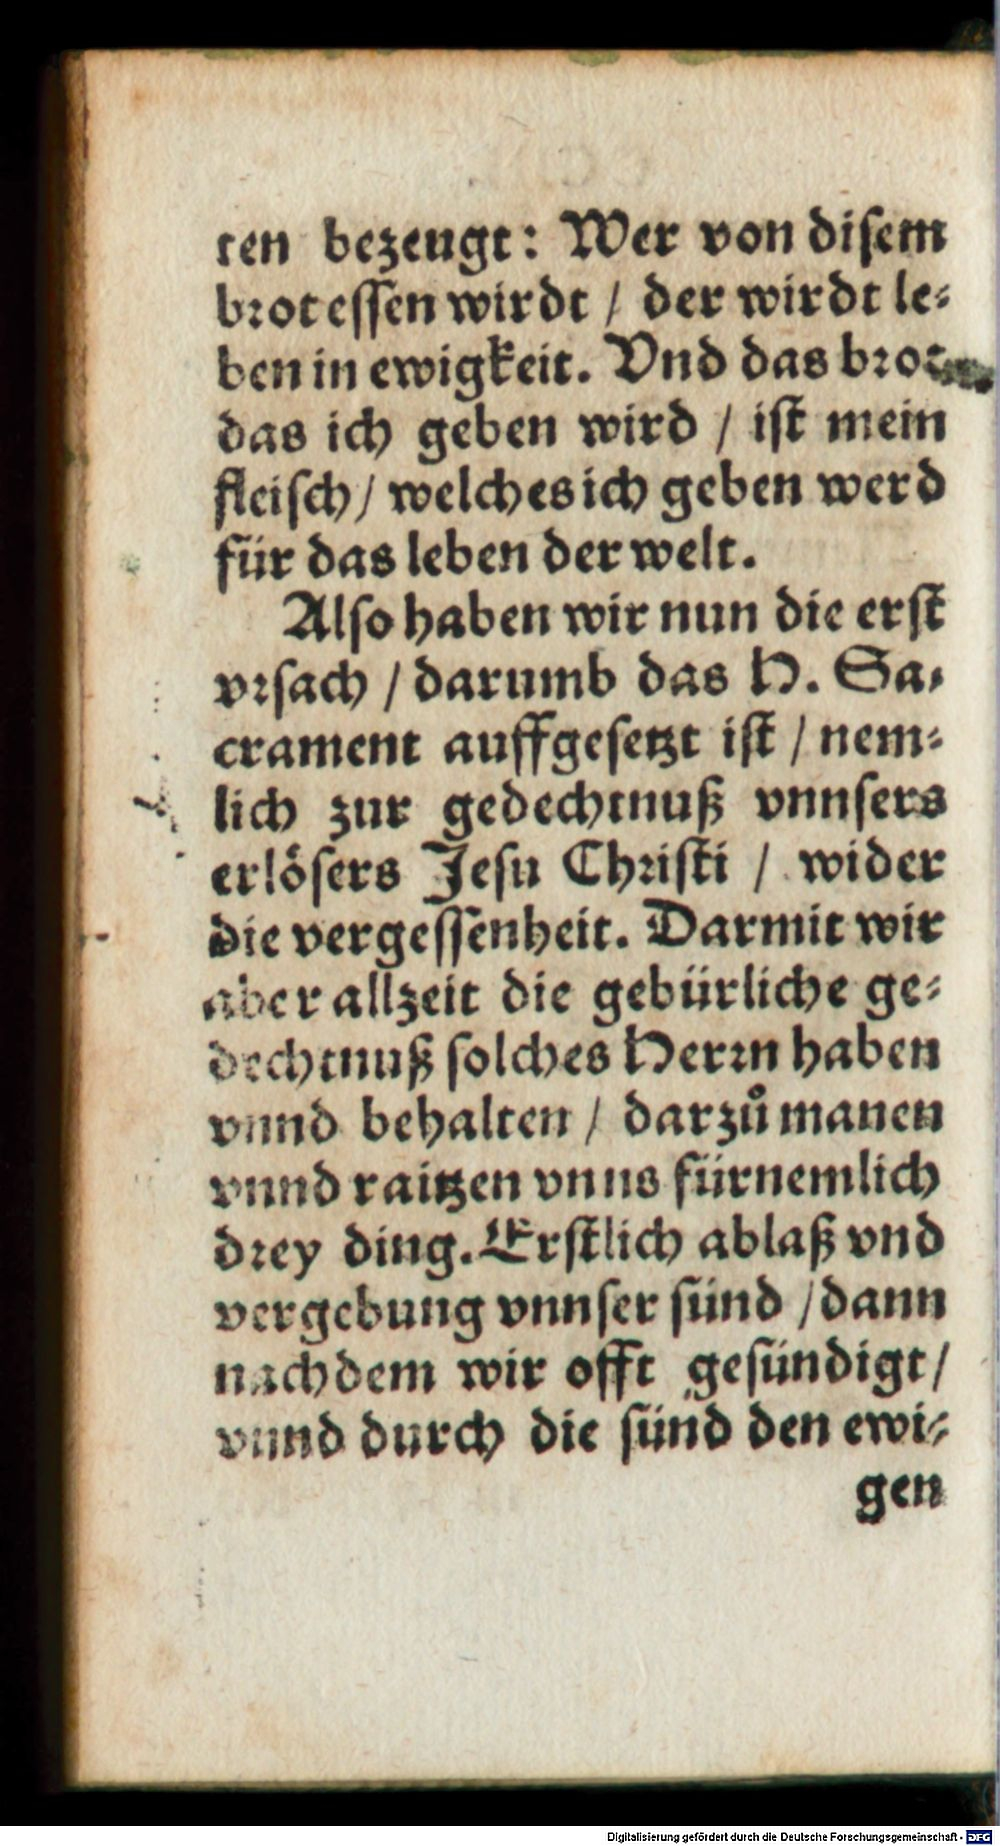 ten bezeugt: Wer von disem
brot essen wirdt / der wirdt le⸗
ben in ewigkeit. Vnd das brot
das ich geben wird / ist mein
fleisch / welches ich geben werd
für das leben der welt.
Also haben wir nun die erst
vrsach / darumb das H. Sa⸗
crament auffgesetzt ist / nem⸗
lich zur gedechtnuß vnnsers
erlösers Jesu Christi / wider
die vergessenheit. Darmit wir
aber allzeit die gebürliche ge⸗
dechtnuß solches Herrn haben
vnnd behalten / darzů manen
vnnd raitzen vnns fürnemlich
drey ding. Erstlich ablaß vnd
vergebung vnnser sünd / dann
nachdem wir offt gesündigt /
vnnd durch die sünd den ewi⸗
gen
Digitalisierung gefördert durch die Deutsche Forschungsgemeinschaft - DFG